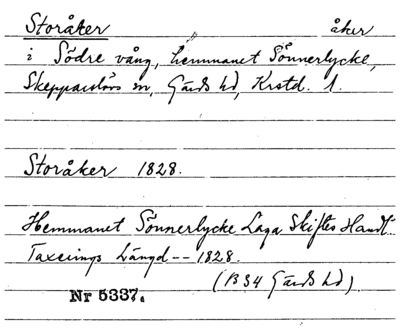 Storåker åker
i Södre vång, hemmanet Sönnerlycke,
Skepparslövs sn, Gärds hd, Krstd. l.
Storåker 1828.
Hemmanet Sönnerlycke Laga Skiftes Handl.
Taxerings Längd -- 1828.
(B 34 Gärds hd)
Nr 5337.